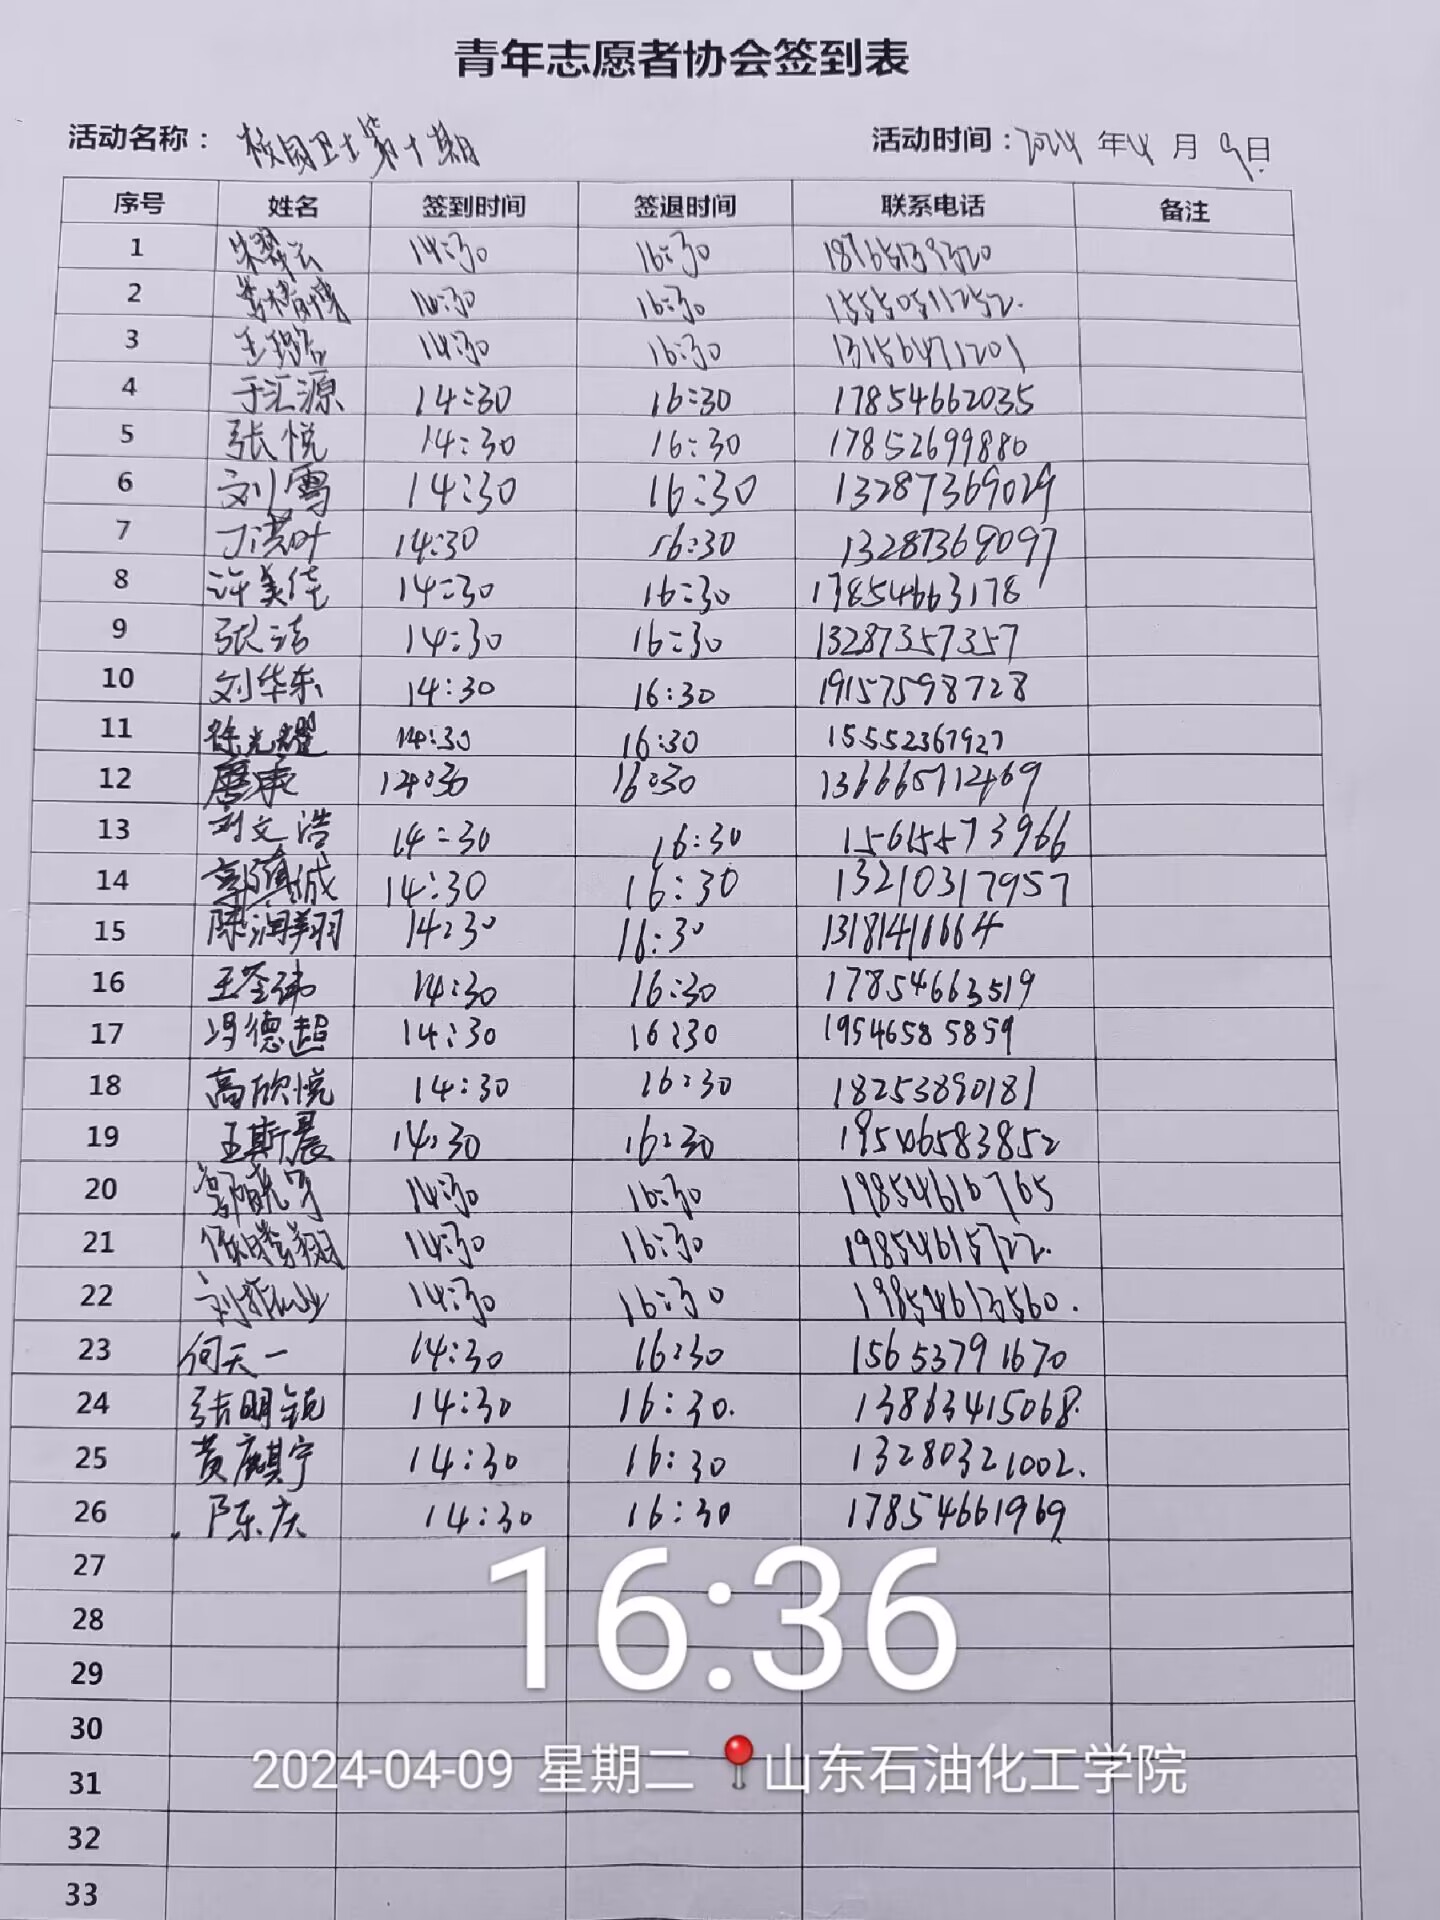 青年志愿者协会签到表
活动名称： 校园卫士第十期 活动时间：2024 年 4 月 9 日
序号 姓名 签到时间 签退时间 联系电话 备注
1 14:30 16:30
2 14:30 16:30 15550511252.
3 14:30 16:30 13156471201
4 于汇源 14:30 16:30 17854662035
5 张悦 14:30 16:30 17852699880
6 刘雪 14:30 16:30 13287369029
7 丁洪叶 14:30 16:30 13287369097
8 许美佳 14:30 16:30 17854663178
9 张洁 14:30 16:30 13287357357
10 刘华东 14:30 16:30 19157598728
11 徐光耀 14:30 16:30 15552367927
12 14:30 16:30
13 刘文浩 14:30 16:30 15615573966
14 14:30 16:30 13210317957
15 陈润翔 14:30 16:30
16 王荃玮 14:30 16:30 17854663519
17 冯德超 14:30 16:30 19546585859
18 高欣悦 14:30 16:30 18253890181
19 王斯晨 14:30 16:30 19546583852
20 14:30 16:30 19854610765
21 14:30 16:30 19854615722.
22 14:30 16:30 19854613560.
23 何天一 14:30 16:30 15653791670
24 张明锐 14:30 16:30. 13863415068.
25 黄麒宇 14:30 16:30 13280321002.
26 陈庆 14:30 16:30 17854661969
27
28
29
30
31
32
33
16:36
2024-04-09 星期二 山东石油化工学院